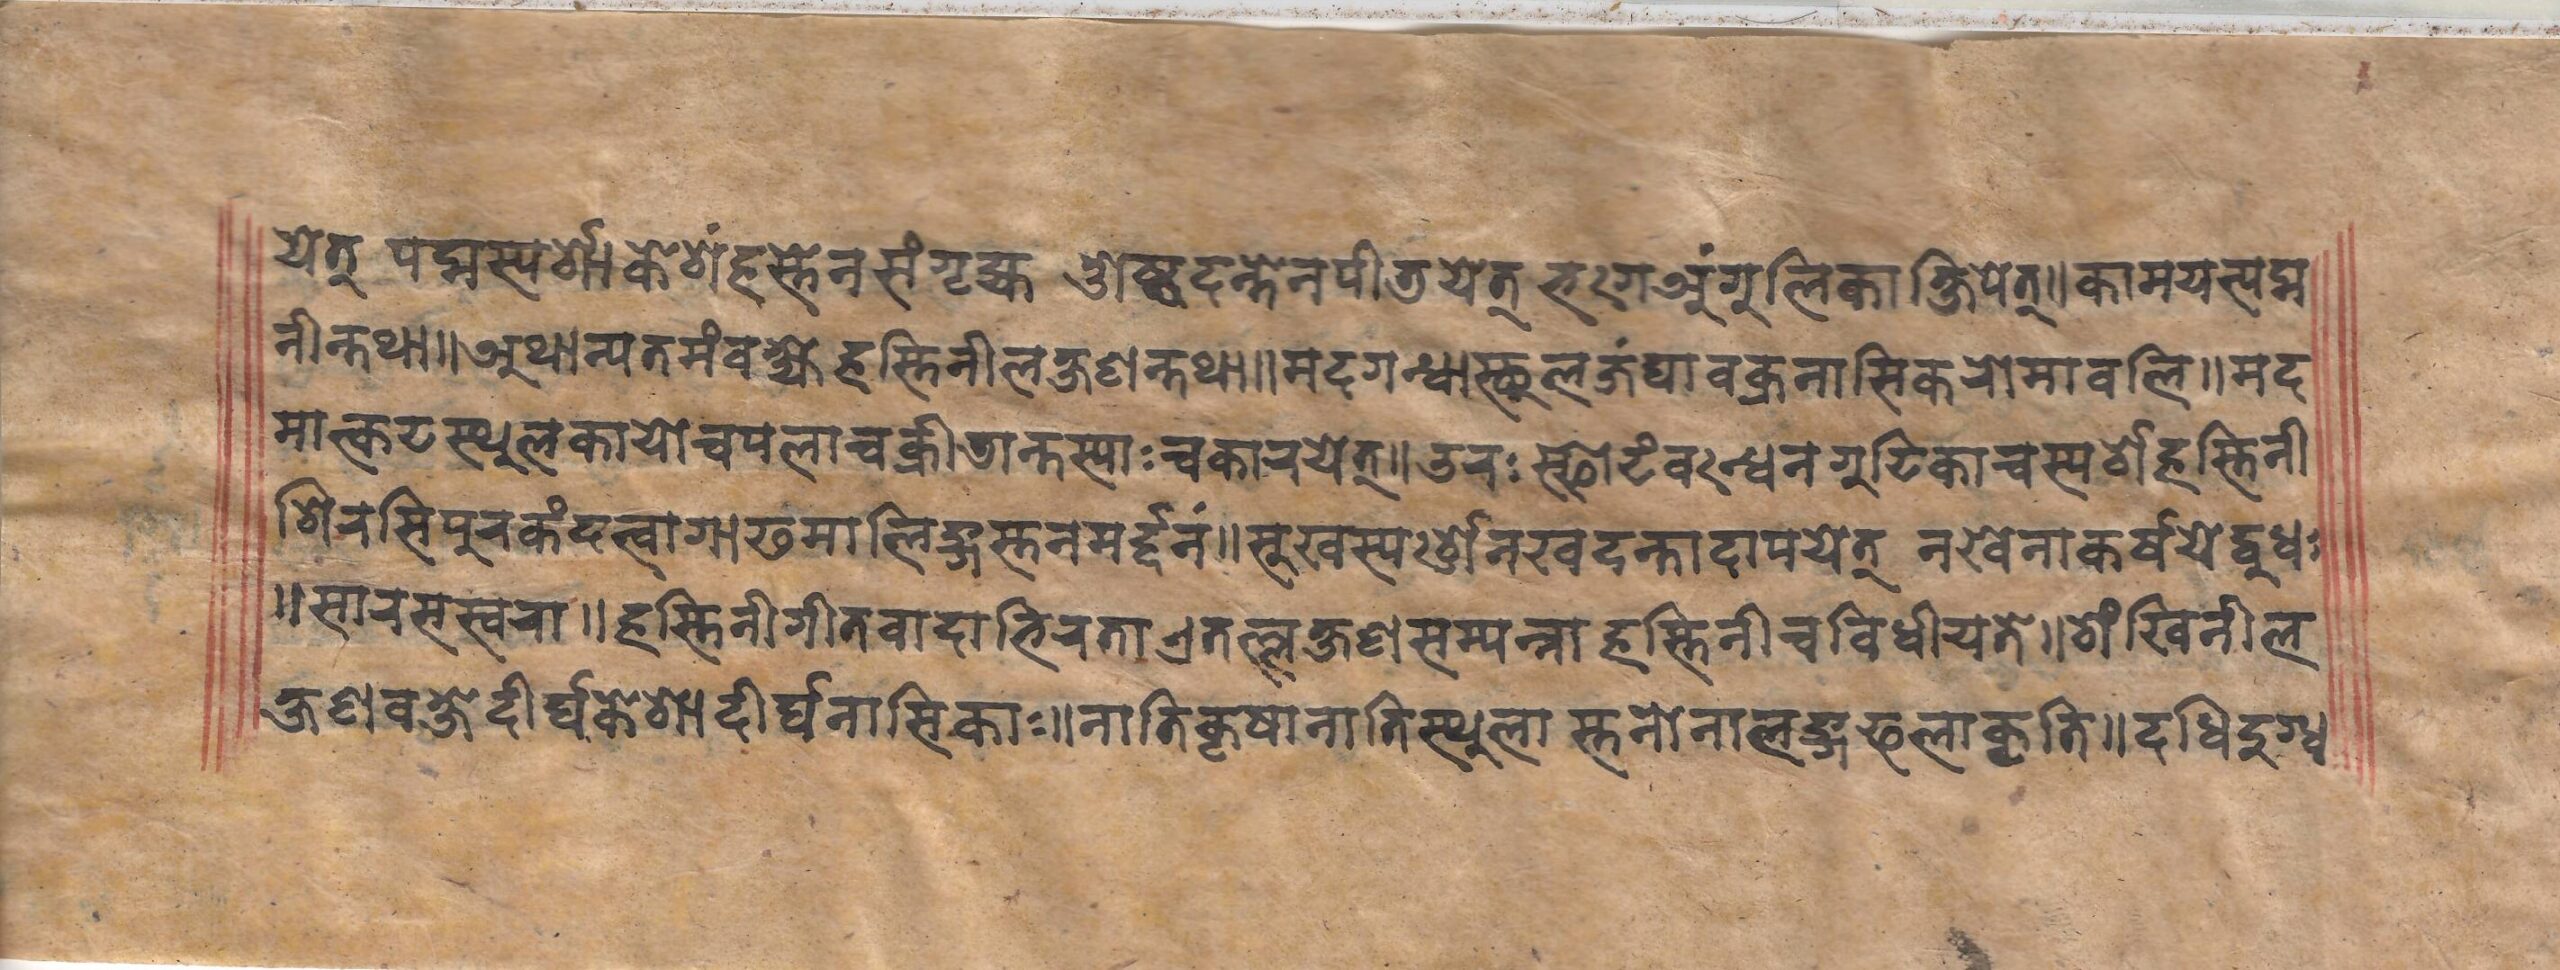 येत् पद्मस्पर्शो।केशंहस्तेनसंगृह्य ओष्ठदन्तेनपीडयेत् भगअंगुलिकाक्षिपेत्॥कामयत्पद्म
नीन्तथा॥अथान्यतमंवक्ष्येहस्तिनीलक्षणन्तथा॥मदगन्धास्थूलजंघावक्रनासिकरोमावलि॥मद
मात्कटस्थुलकायोचपलाचक्रीडान्तस्याःचकारयेत्॥उरःस्फोटंवन्धनगुटिकाचस्पर्शेहस्तिनी
शिरसिपुरकंदत्वागाढमालिङ्गस्तनमर्द्दनं॥सुखस्पर्शेनखदन्तादापयेत् नखेनाकर्षयेद्बुधः
॥सारसस्वरा॥हस्तिनीगीतवादाभिरताएतल्लक्षणसम्पन्नाहस्तिनीचविधीयते॥शंखिनील
क्षणवक्षेदीर्घकेशो।दीर्घनासिकाः॥नातिकृषानातिस्थुला स्तनोनालङ्गफलाकृति॥दधिदुग्ध